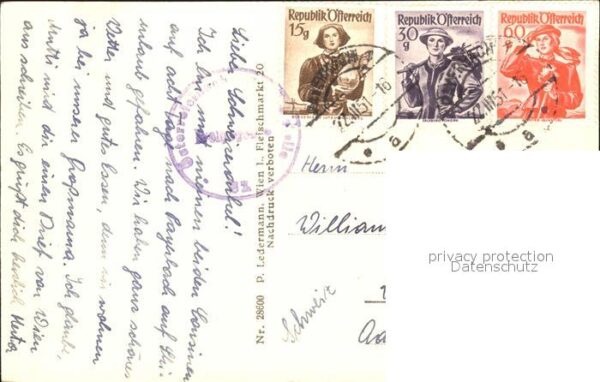 Lieber Schweizeronkel!
Ich bin mit meinen beiden Cousinen
auf acht Tage nach Payerbach auf Ur-
laub gefahren. Wir haben ganz schönes
Wetter und gutes Essen, denn wir wohnen
ja bei unserer Großmama. Ich glaube,
Mutti wird dir einen Brief von Wien
aus schreiben. Es grüßt dich herzlich
Nr. 28600 P. Ledermann, Wien I., Fleischmarkt 20
Nachdruck verboten
Republik Österreich
15g
Republik Österreich
30g
Republik Österreich
60g
Herrn
William
Schweiz
privacy protection
Datenschutz